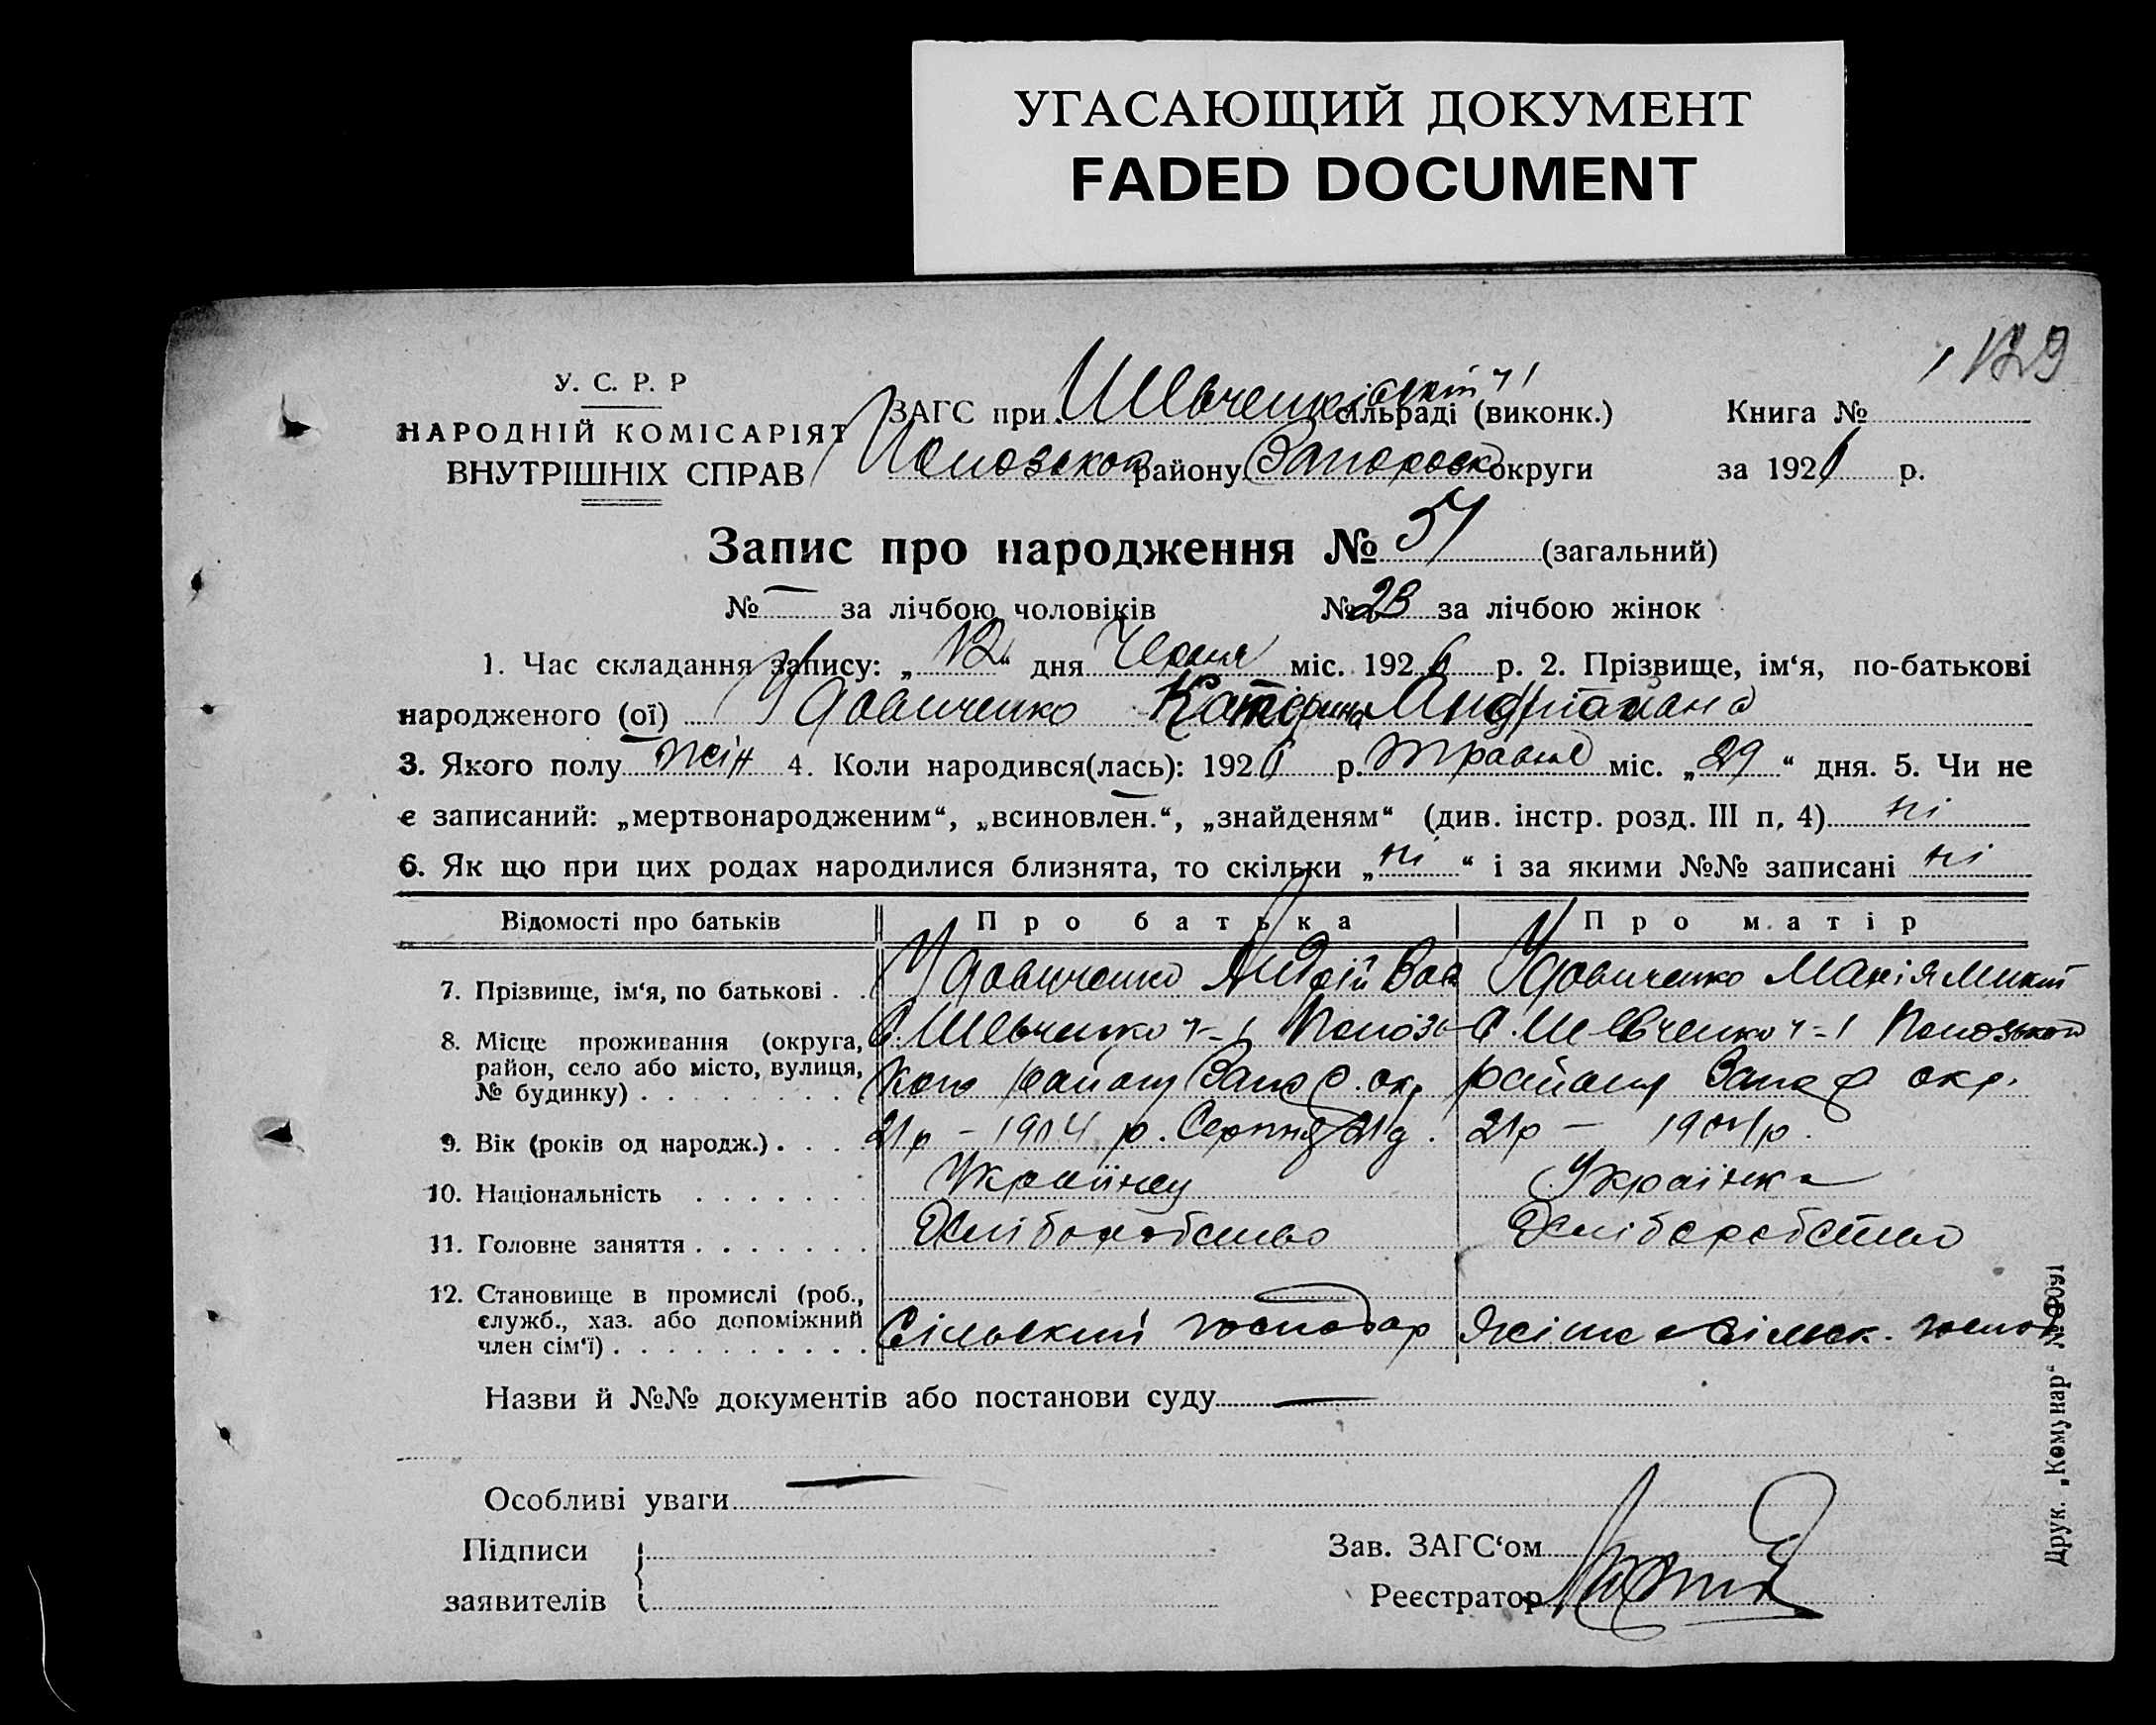 УГАСАЮЩИЙ ДОКУМЕНТ
FADED DOCUMENT
129
У. С. Р. Р
НАРОДНІЙ КОМІСАРІЯТ
ВНУТРІШНІХ СПРАВ
ЗАГС при Шевченківській ч 1 сільраді (виконк.)
району Запорізьк округи
Книга №
за 1926 р.
Запис про народження № 51 (загальний)
№ — за лічбою чоловіків № 23 за лічбою жінок
1. Час складання запису: „12“ дня Червня міс. 1926 р. 2. Прізвище, ім‘я, по-батькові
народженого (ої) Удовиченко Катерина
3. Якого полу жін 4. Коли народився(лась): 1926 р. травня міс. „29“ дня. 5. Чи не
є записаний: „мертвонародженим“, „всиновлен.“, „знайденям“ (див. інстр. розд. III п. 4) ні
6. Як що при цих родах народилися близнята, то скільки „ні“ і за якими №№ записані ні
Відомості про батьків Про батька Про матір
7. Прізвище, ім‘я, по батькові . . Удовиченко Андрій Удовиченко Марія Микит
8. Місце проживання (округа,
район, село або місто, вулиця,
№ будинку) . . . . . . . . .
С. Шевченко ч-1
району Запор. окр
С. Шевченко ч-1
району Запор окр.
9. Вік (років од народж.) . . . . 21р – 1904 р. Серпня 21д. 21р –
10. Національність . . . . . . . Українец Українка
11. Головне заняття . . . . . . . Хліборобство Хліборобство
12. Становище в промислі (роб.,
служб., хаз. або допоміжний
член сім‘ї) . . . . . . . . . .
Сільский господар
сільск. господ
Назви й №№ документів або постанови суду —
Особливі уваги —
Підписи
заявителів
Зав. ЗАГС‘ом
Реєстратор
Друк. „Комунар“